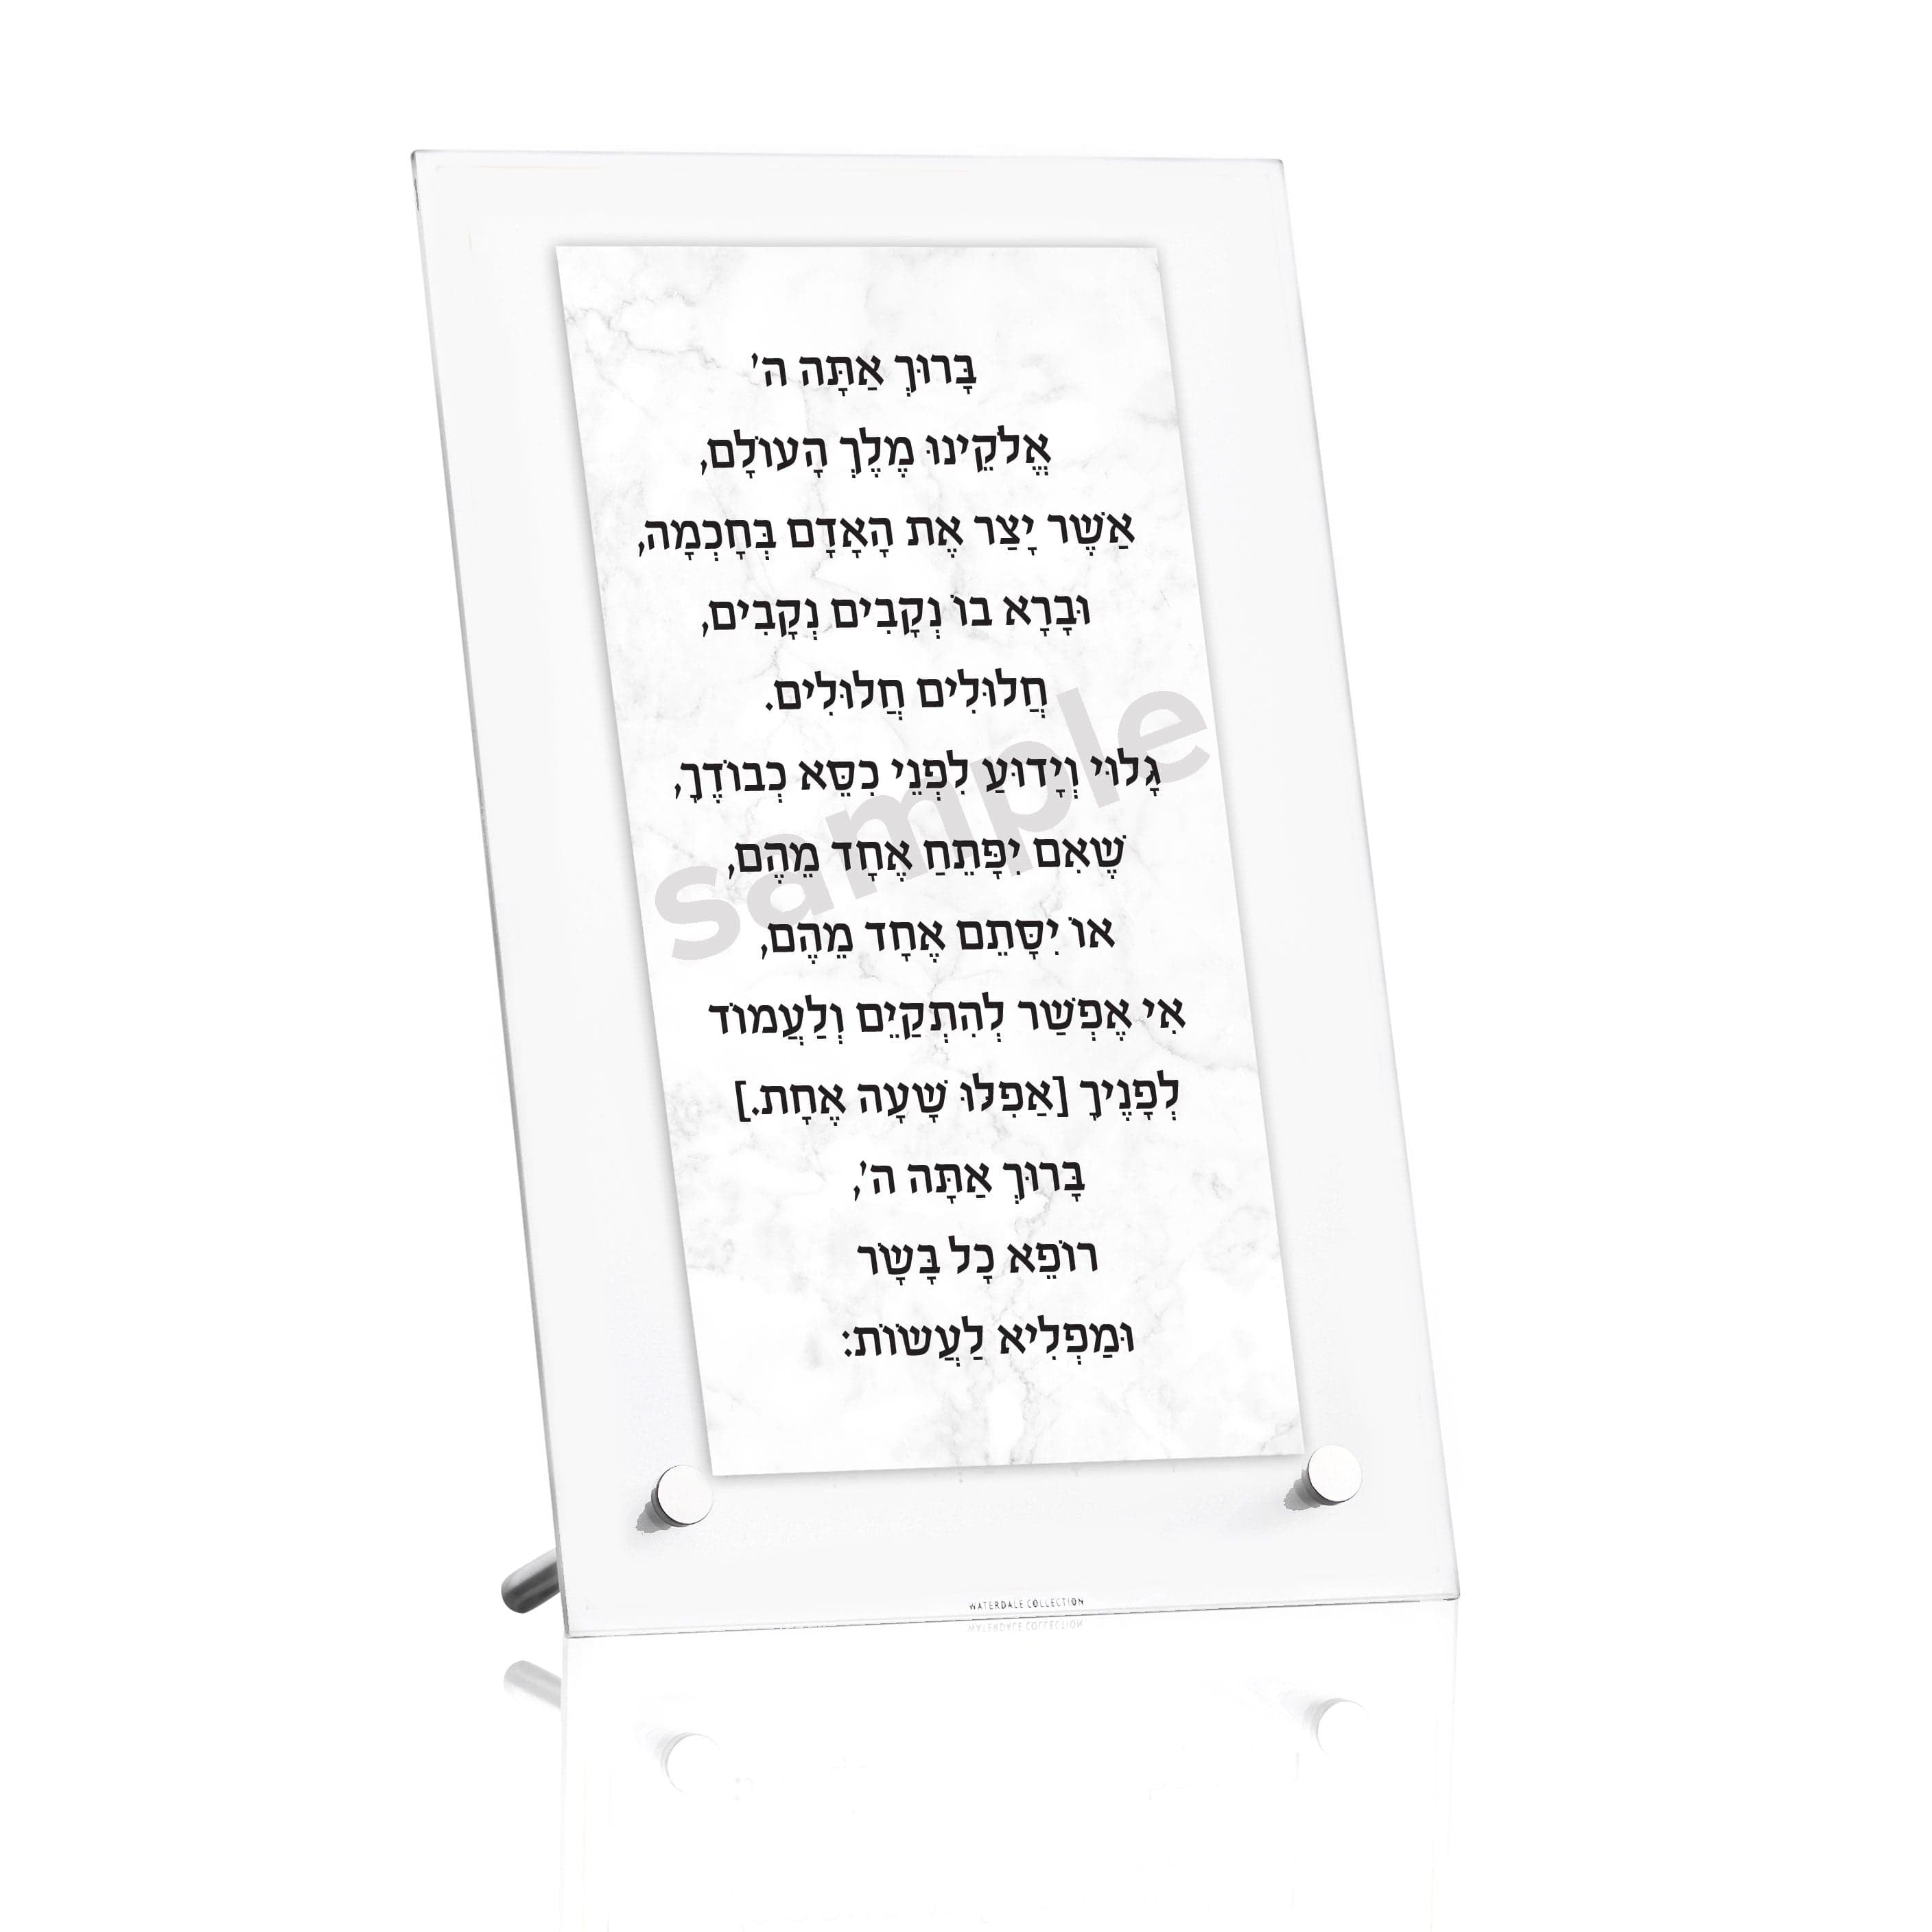 בָּרוּךְ אַתָּה ה'
אֱלֹקֵינוּ מֶלֶךְ הָעוֹלָם,
אַשֶׁר יָצַר אֶת הָאָדָם בְּחָכְמָה,
וּבָרָא בוֹ נְקָבִים נְקָבִים,
חֲלוּלִים חֲלוּלִים.
גָלוּי וְיָדוּעַ לִפְנֵי כִסֵּא כְבוֹדֶךָ,
שֶׁאִם יִפָּתֵחַ אֶחָד מֵהֶם,
אוֹ יִסָּתֵם אֶחָד מֵהֶם,
אִי אֶפְשַׁר לְהִתְקַיֵּם וְלַעֲמוֹד
לְפָנֶיךָ [אַפִלּוּ שָׁעָה אֶחָת.]
בָּרוּךְ אַתָּה ה',
רוֹפֵא כָל בָּשָׂר
וּמַפְלִיא לַעֲשׂוֹת:
sample
WATERDALE COLLECTION